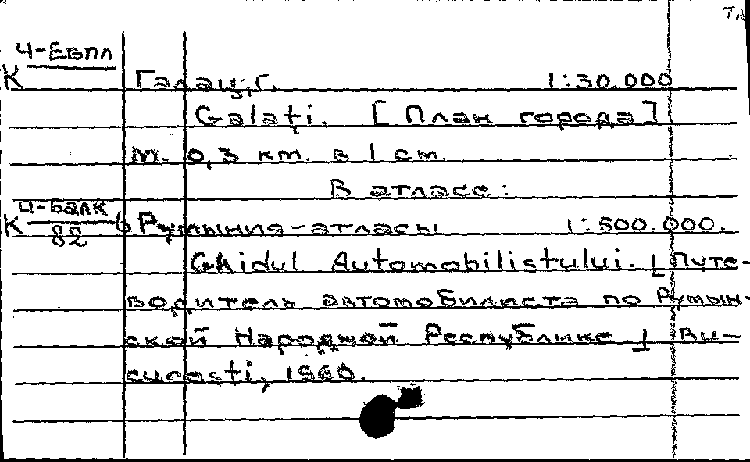 Ч-Евпл
К Галац, г. 1:30.000
Galaţi. [План города]
М. 0,3 км. в 1 см
В атласе:
К Ч-Балк
82 6 Румыния-атласы 1:500.000.
Ghidul Automobilistului. [Путе-
водитель автомобилиста по Румын-
ской Народной Республике] Bu-
curesti, 1960.